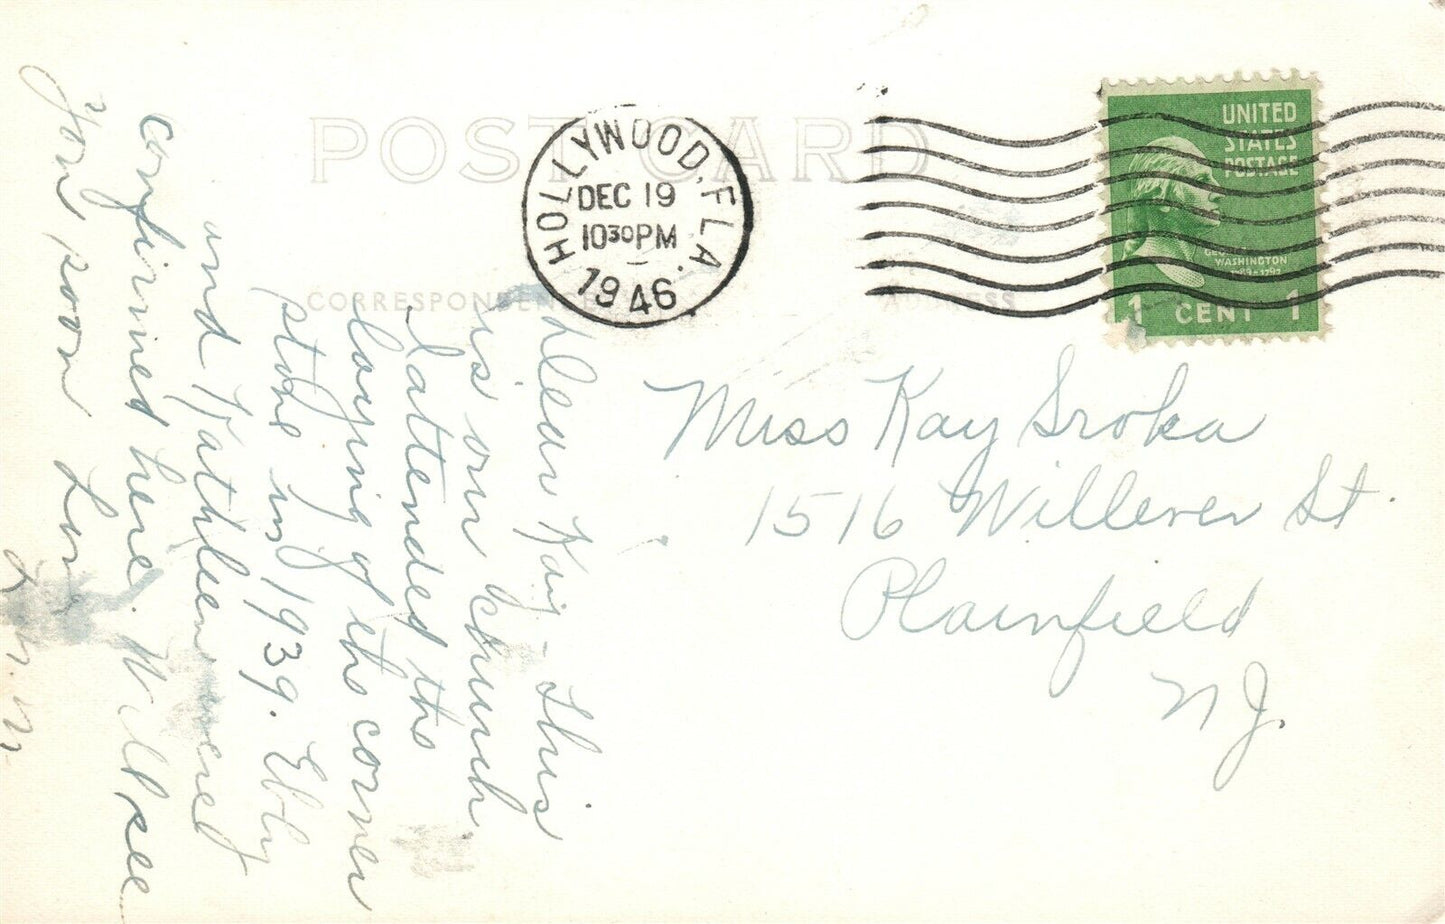 POST CARD
HOLLYWOOD, FLA.
DEC 19
10 30 PM
1946
UNITED
STATES
POSTAGE
GEORGE
WASHINGTON
1789-1797
1 CENT 1
CORRESPONDENCE
ADDRESS
Dear Kay - This
is our Church
I attended the
laying of the corner
stone in 1939. Ebby
and Kathleen were
confirmed here. Will see
You soon Love
Miss Kay Sroka
1516 Willever St.
Plainfield
N J.